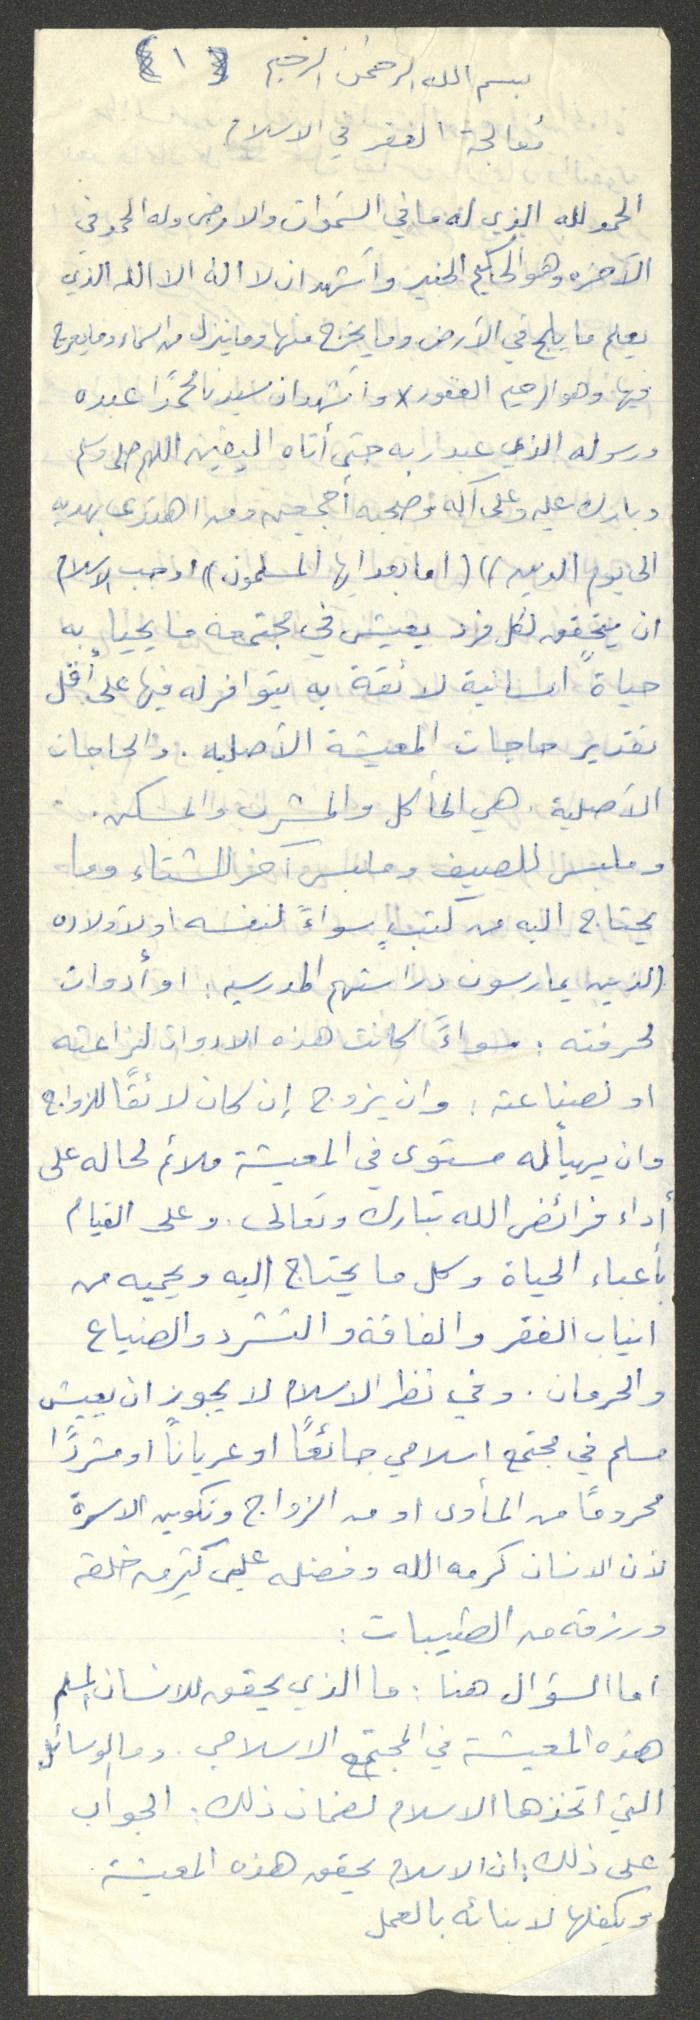 بسم الله الرحمن الرحيم (١)
معالجة الفقر في الاسلام
الحمد لله الذي له ما في السموات والارض وله الحمد في
الآخره وهو الحكيم الخبير وأشهد ان لا اله الا الله الذي
يعلم ما يلج في الأرض وما يخرج منها وما ينزل من السماء وما يعرج
فيها وهو الرحيم الغفور x وأشهد ان سيدنا محمدًا عبده
ورسوله الذي عبد ربه حتى أتاه اليقين اللهم صلي وسلم
وبارك عليه وعلى آله وصحبه أجمعين ومن اهتدى بهديه
الى يوم الدين )) (اما بعد ايها المسلمون)) اوجب الاسلام
ان يتحقق لكل فرد يعيش في مجتمعه ما يحيا به
حياةً انسانية لائقة به يتوافر له فيها على أقل
تقدير حاجات المعيشة الأصليه . والحاجات
الأصلية . هي المأكل والمشرب والمسكن .
وملبس للصيف وملبس آخر للشتاء وما
يحتاج اليه من كتبٍ سواءً لنفسه او لأولاده
الذين يمارسون دراستهم المدرسيه : او أدوات
لحرفته : سواءً كانت هذه الادوات لزراعته
او لصناعته : وان يزوج إن كان لائقًا للزواج
وان يهيأ له مستوى في المعيشة ملائم لحاله على
أداء فرائض الله تبارك وتعالى . وعلى القيام
بأعباء الحياة وكل ما يحتاج اليه ويحميه من
انياب الفقر والفاقة والتشرد والضياع
والحرمان . وفي نظر الاسلام لا يجوز ان يعيش
مسلم في مجتمع اسلامي جائعًا او عريانًا او مشردًا
محرومًا من المأوى او من الزواج وتكوين الاسرة
لأن الانسان كرمه الله وفضله على كثير من خلقه
ورزقه من الطيبات :
اما السؤال هنا : ما الذي يحقق للانسان المسلم
هذه المعيشة في المجتمع الاسلامي . وما الوسائل
التي اتخذها الاسلام لضمان ذلك : الجواب
على ذلك : ان الاسلام يحقق هذه المعيشة
ويكفلها لابنائه بالعمل